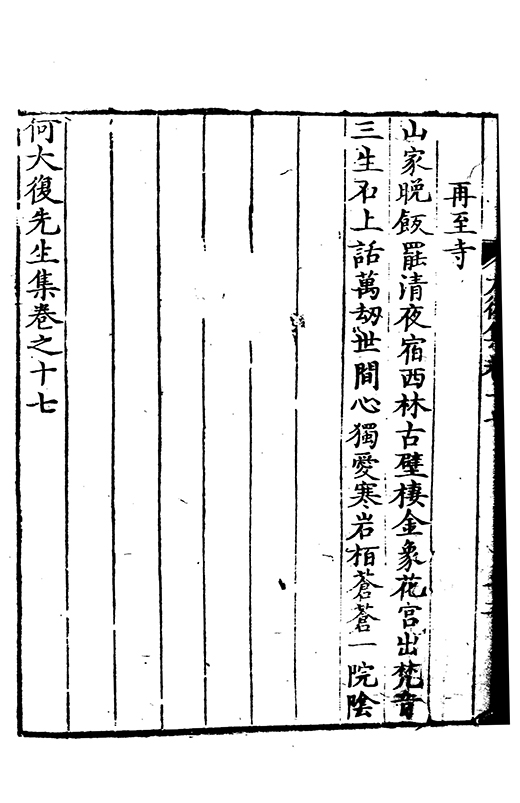 再至寺
山家晚飯罷清夜宿西林古壁棲金象花宮出梵音
三生石上話萬劫世間心獨愛寒岩栢蒼蒼一院陰
何大復先生集卷之十七